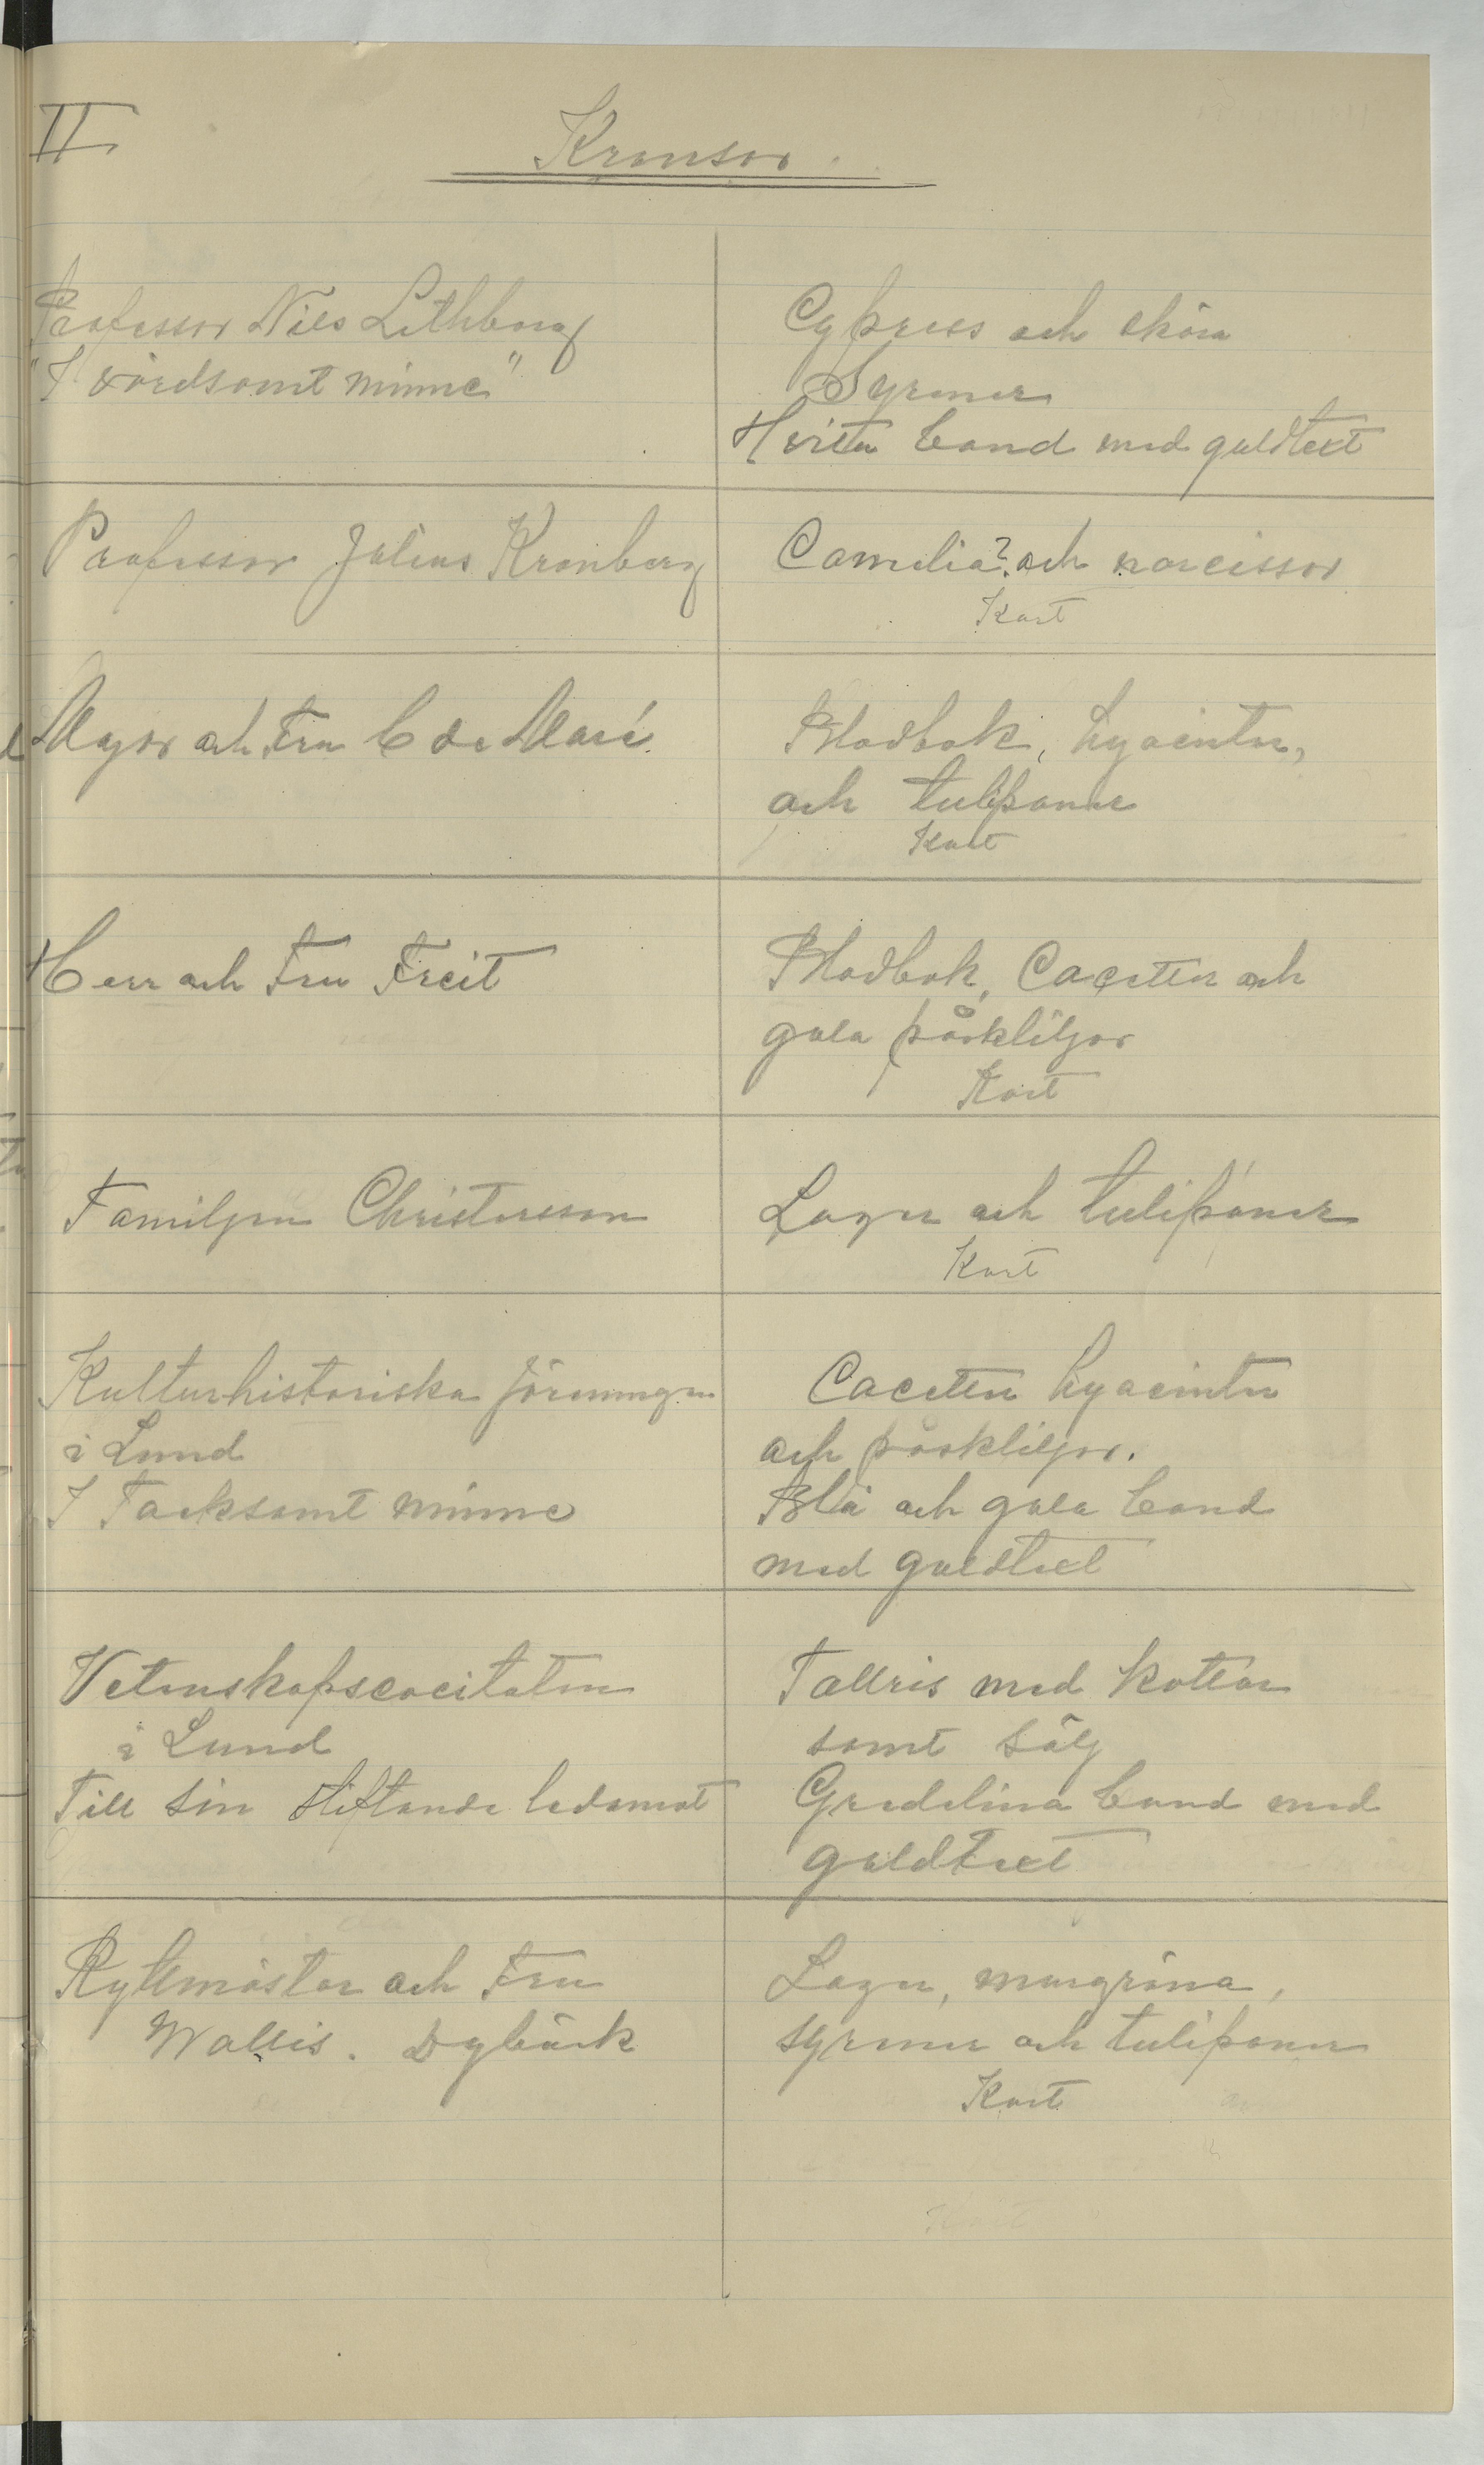 II
Kransar.
Professor Nils Lithberg
"I vördsamt minne"
Cypress och skära
Syrener
Hvita band med guldtext
Professor Julius Kronberg
Camelia? och narcisser
Kort
Major och Fru C de Maré.
Blodbok, hyacinter,
och tulipaner
Kort
Herr och Fru Freit
Blodbok, Cacteer och
gula påskliljor
Kort
Familjen Christersson
Lager och tulipaner
Kort
Kulturhistoriska föreningen
i Lund
I Tacksamt minne
Cacteer hyacinter
och påskliljor.
Blå och gula band
med guldtext
Vetenskapscocieteten
i Lund
Till sin stiftande ledamot
Tallris med kottar
samt sälg
Gredelina band med
guldtext
Ryttmästar och Fru
Wallis. Dybäck
Lager, murgröna,
syrener och tulipaner
Kort